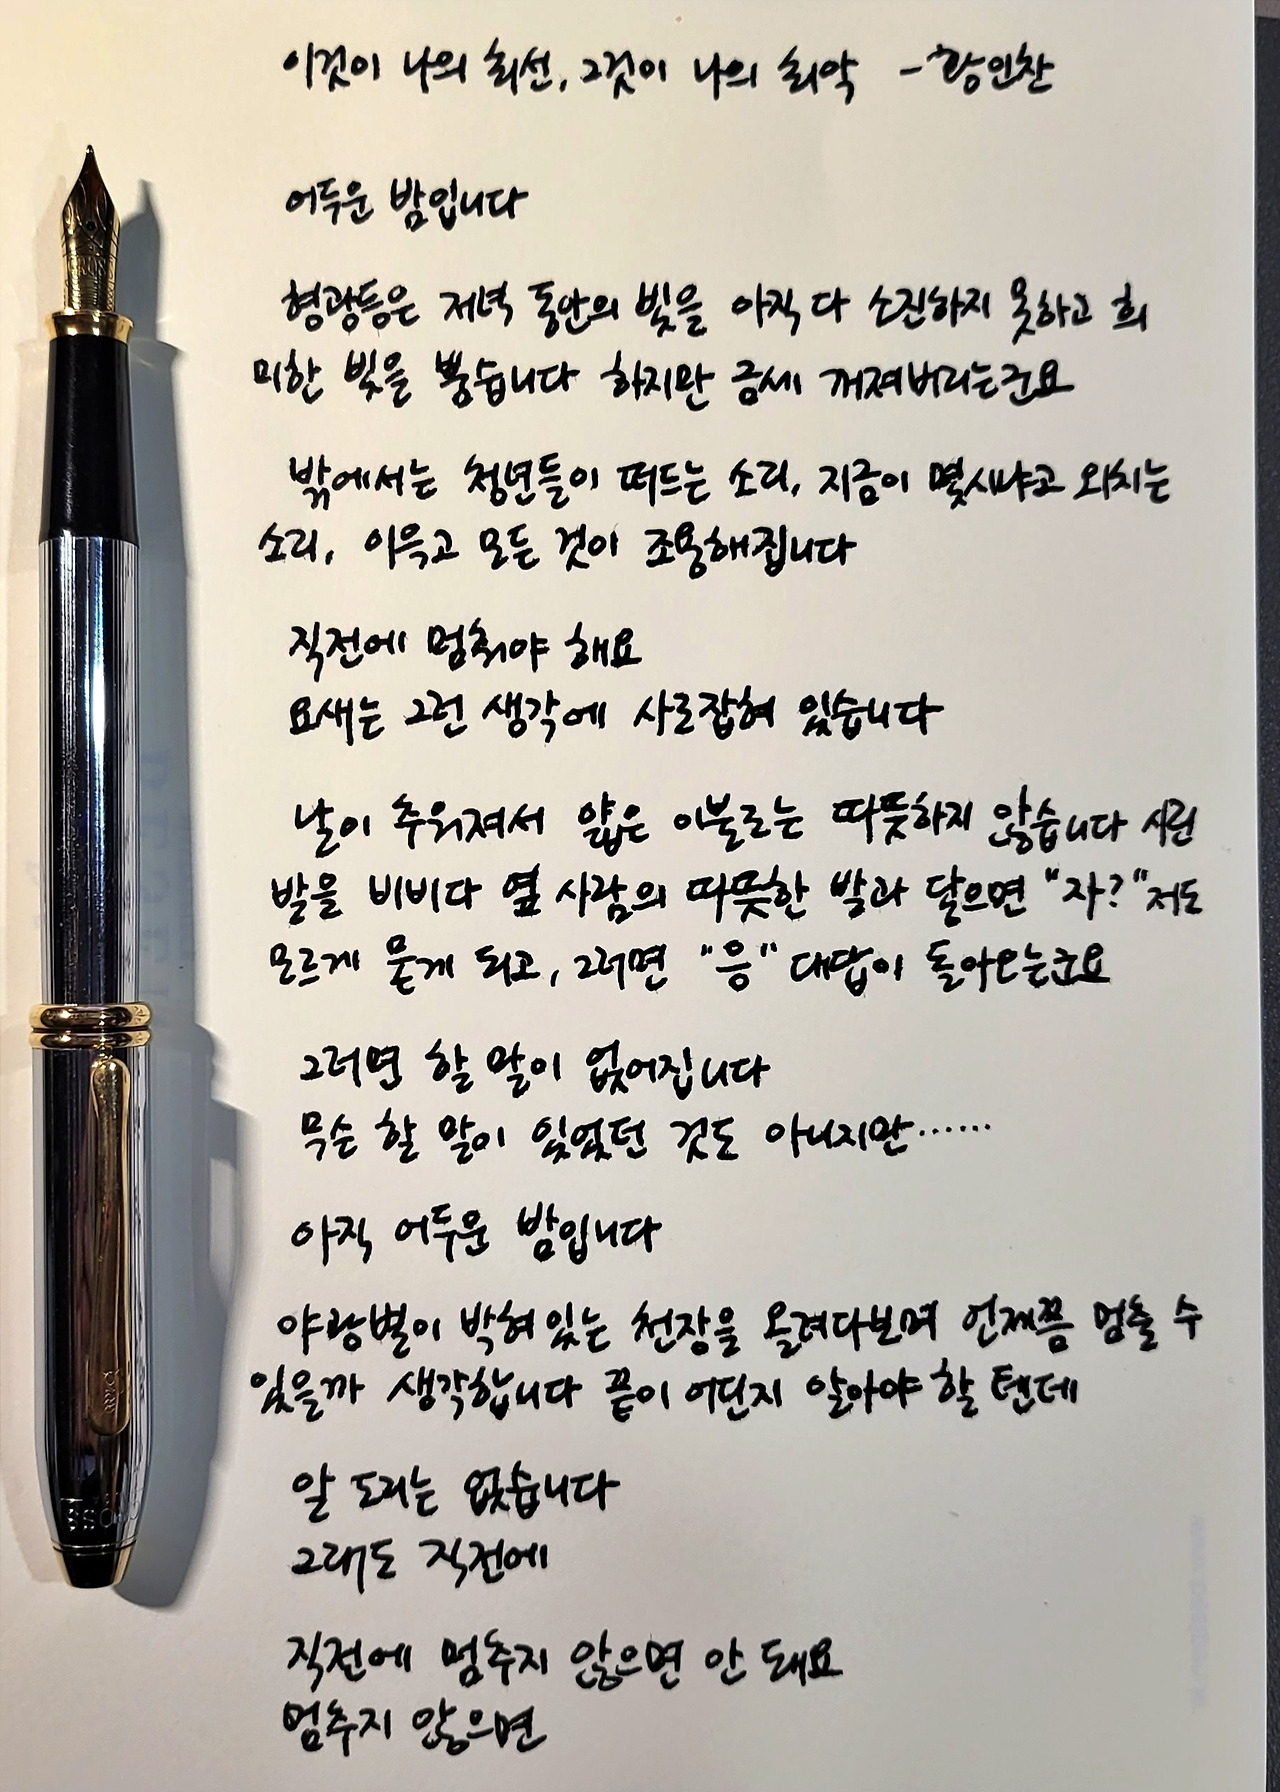 이것이 나의 최선, 그것이 나의 최악 - 황인찬
어두운 밤입니다
형광등은 저녁 동안의 빛을 아직 다 소진하지 못하고 희
미한 빛을 뿜습니다 하지만 금세 꺼져버리는군요
밖에서는 청년들이 떠드는 소리, 지금이 몇시냐고 외치는
소리, 이윽고 모든 것이 조용해집니다
직전에 멈춰야 해요
요새는 그런 생각에 사로잡혀 있습니다
날이 추워져서 얇은 이불로는 따뜻하지 않습니다 시린
발을 비비다 옆 사람의 따뜻한 발과 닿으면 "자?" 저도
모르게 묻게 되고, 그러면 "응" 대답이 돌아오는군요
그러면 할 말이 없어집니다
무슨 할 말이 있었던 것도 아니지만……
아직 어두운 밤입니다
야광별이 박혀 있는 천장을 올려다보며 언제쯤 멈출 수
있을까 생각합니다 끝이 어딘지 알아야 할 텐데
알 도리는 없습니다
그래도 직전에
직전에 멈추지 않으면 안 돼요
멈추지 않으면
CROSS